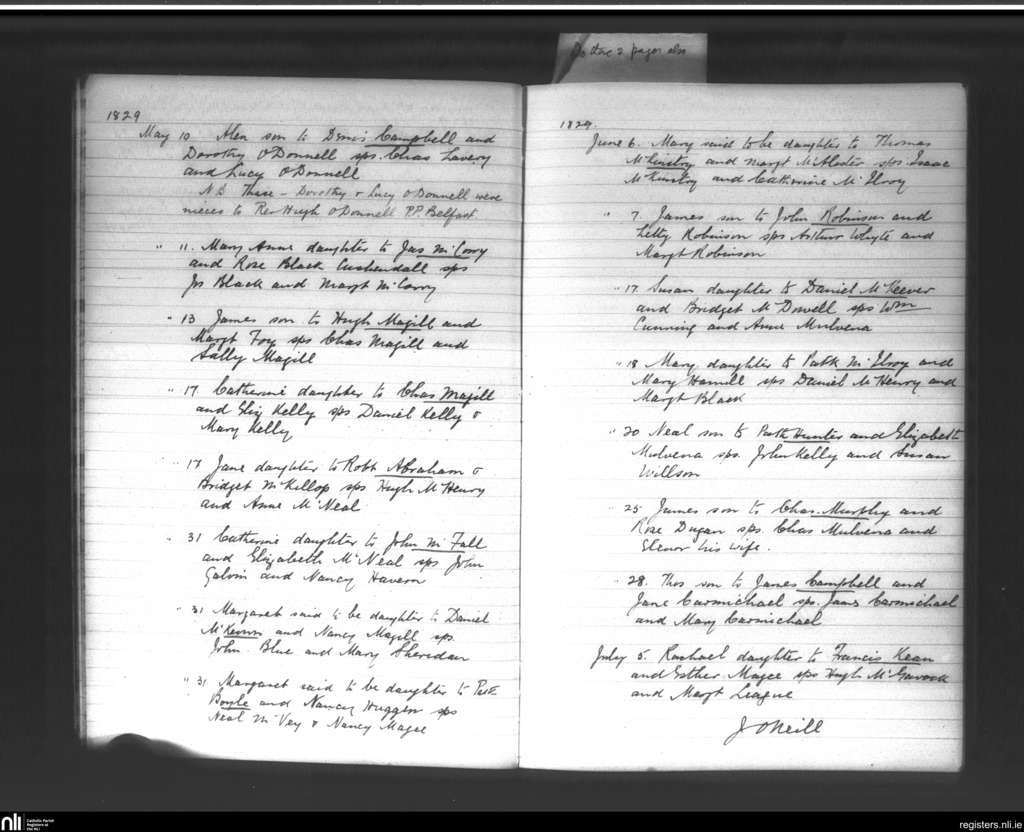 Do these 2 pages also
1829
May 10 Alex son to Denis Campbell and
Dorothy O'Donnell sps. Chas Lavery
and Lucy O'Donnell
N.B. These - Dorothy & Lucy O'Donnell were
nieces to Rev Hugh O'Donnell P.P. Belfast.
" 11. Mary Anne daughter to Jas McCorry
and Rose Black Cushendall sps
Js Black and Margt McCorry
" 13 James son to Hugh Magill and
Margt Foy sps Chas Magill and
Sally Magill
" 17 Catherine daughter to Chas Magill
and Eliz Kelly sps Daniel Kelly &
Mary Kelly
" 17 Jane daughter to Robt Abraham &
Bridget McKillop sps Hugh McHenry
and Anne McNeal
" 31 Catherine daughter to John McFall
and Elizabeth McNeal sps John
Galvin and Nancy Havern
" 31 Margaret said to be daughter to Daniel
McKeown and Nancy Magill sps.
John Blue and Mary Sheridan
" 31 Margaret said to be daughter to Patk
Boyle and Nancy Huggen sps
Neal McVey & Nancy Magee
1829.
June 6. Mary said to be daughter to Thomas
McKinstry and Margt McAlister sps. Isaac
McKinstry and Catherine McIlroy
" 7. James son to John Robinson and
Letty Robinson sps Arthur Whyte and
Margt Robinson
" 17. Susan daughter to Daniel McKeever
and Bridget McDowell sps Wm
Cunning and Anne Mulvena
" 18 Mary daughter to Patk McIlroy and
Mary Hamill sps Daniel McHenry and
Margt Black
" 20 Neal son to Patk Hunter and Elizabeth
Mulvena sps. John Kelly and Susan
Willson
25. James son to Chas. Murphy and
Rose Dugan sps. Chas Mulvena and
Elenor his wife.
" 28. Thos son to James Campbell and
Jane Carmichael sps. James Carmichael
and Mary Carmichael
July 5. Rachael daughter to Francis Kean
and Esther Magee sps Hugh McGavock
and Margt League
J O'Neill
nli
Catholic Parish
Registers at
the NLI
registers.nli.ie